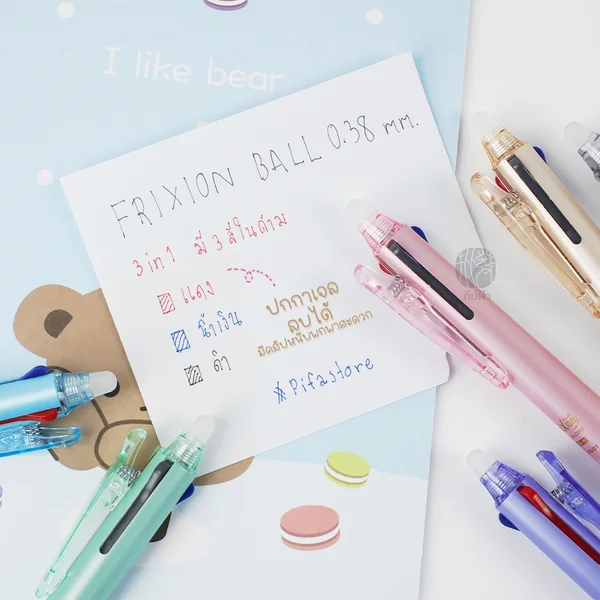 I like bear
FRIXION BALL 0.38 mm.
3 in 1 มี 3 สีในด้าม
แดง
น้ำเงิน
ดำ
ปกกาเจล
ลบได้
มีคลิปหนีบพกพาสะดวก
#Pifastore